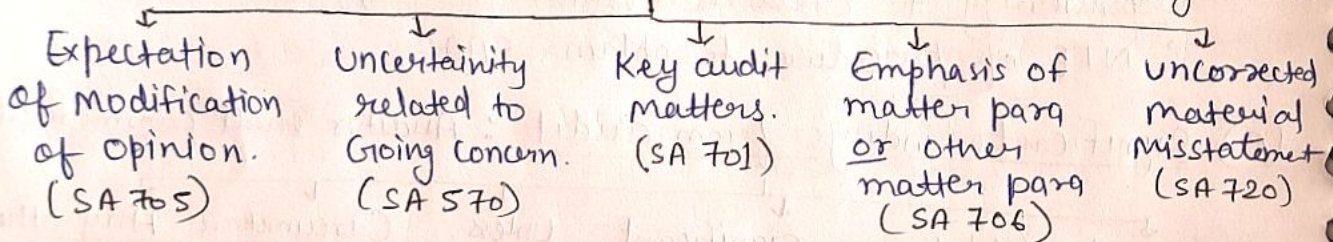 Expectation
of Modification
of opinion.
(SA 705)
Uncertainity
related to
Going Concern.
(SA 570)
Key audit
matters.
(SA 701)
Emphasis of
matter para
or other
matter para
(SA 706)
uncorrected
material
Misstatemet
(SA 720)